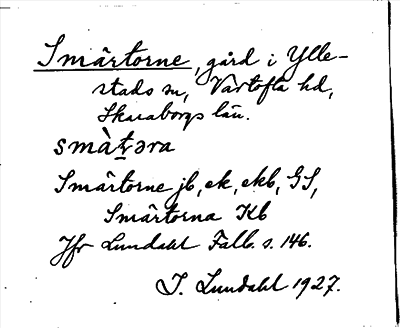 Smårtorne, gård i Ylle-
stads sn, Vartofta hd,
Skaraborgs län.
smàt̯əra
Smårtorne jb, ek, ekb, GS,
Smårtorna Kb
Jfr Lundahl Falb. s. 146.
I. Lundahl 1927.